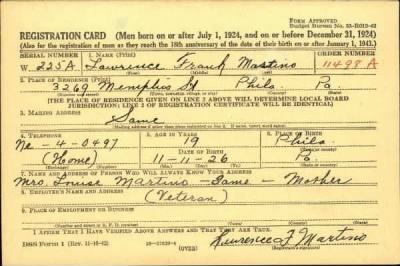 FORM APPROVED
Budget Bureau No. 33-R013-42
REGISTRATION CARD (Men born on or after July 1, 1924, and on or before December 31, 1924)
(Also for the registration of men as they reach the 18th anniversary of the date of their birth on or after January 1, 1943.)
SERIAL NUMBER 1. NAME (Print) ORDER NUMBER
W 225A Lawrence Frank Martino 11498 A
(First) (Middle) (Last)
2. PLACE OF RESIDENCE (Print)
3269 Memphis St Phila. Pa.
(Number and street) (Town, township, village, or city) (County) (State)
[THE PLACE OF RESIDENCE GIVEN ON LINE 2 ABOVE WILL DETERMINE LOCAL BOARD
JURISDICTION; LINE 2 OF REGISTRATION CERTIFICATE WILL BE IDENTICAL]
3. MAILING ADDRESS
Same
[Mailing address if other than place indicated on line 2. If same, insert word same]
4. TELEPHONE 5. AGE IN YEARS 6. PLACE OF BIRTH
Ne - 4 - 0497 19 Phila
DATE OF BIRTH
(Home) 11-11-26 Pa.
7. NAME AND ADDRESS OF PERSON WHO WILL ALWAYS KNOW YOUR ADDRESS
Mrs. Louise Martino - Same - Mother
8. EMPLOYER'S NAME AND ADDRESS
(Veteran)
9. PLACE OF EMPLOYMENT OR BUSINESS
I AFFIRM THAT I HAVE VERIFIED ABOVE ANSWERS AND THAT THEY ARE TRUE.
DSS Form 1 (Rev. 11-16-42) (OVER) Lawrence F Martino
(Registrant's signature)